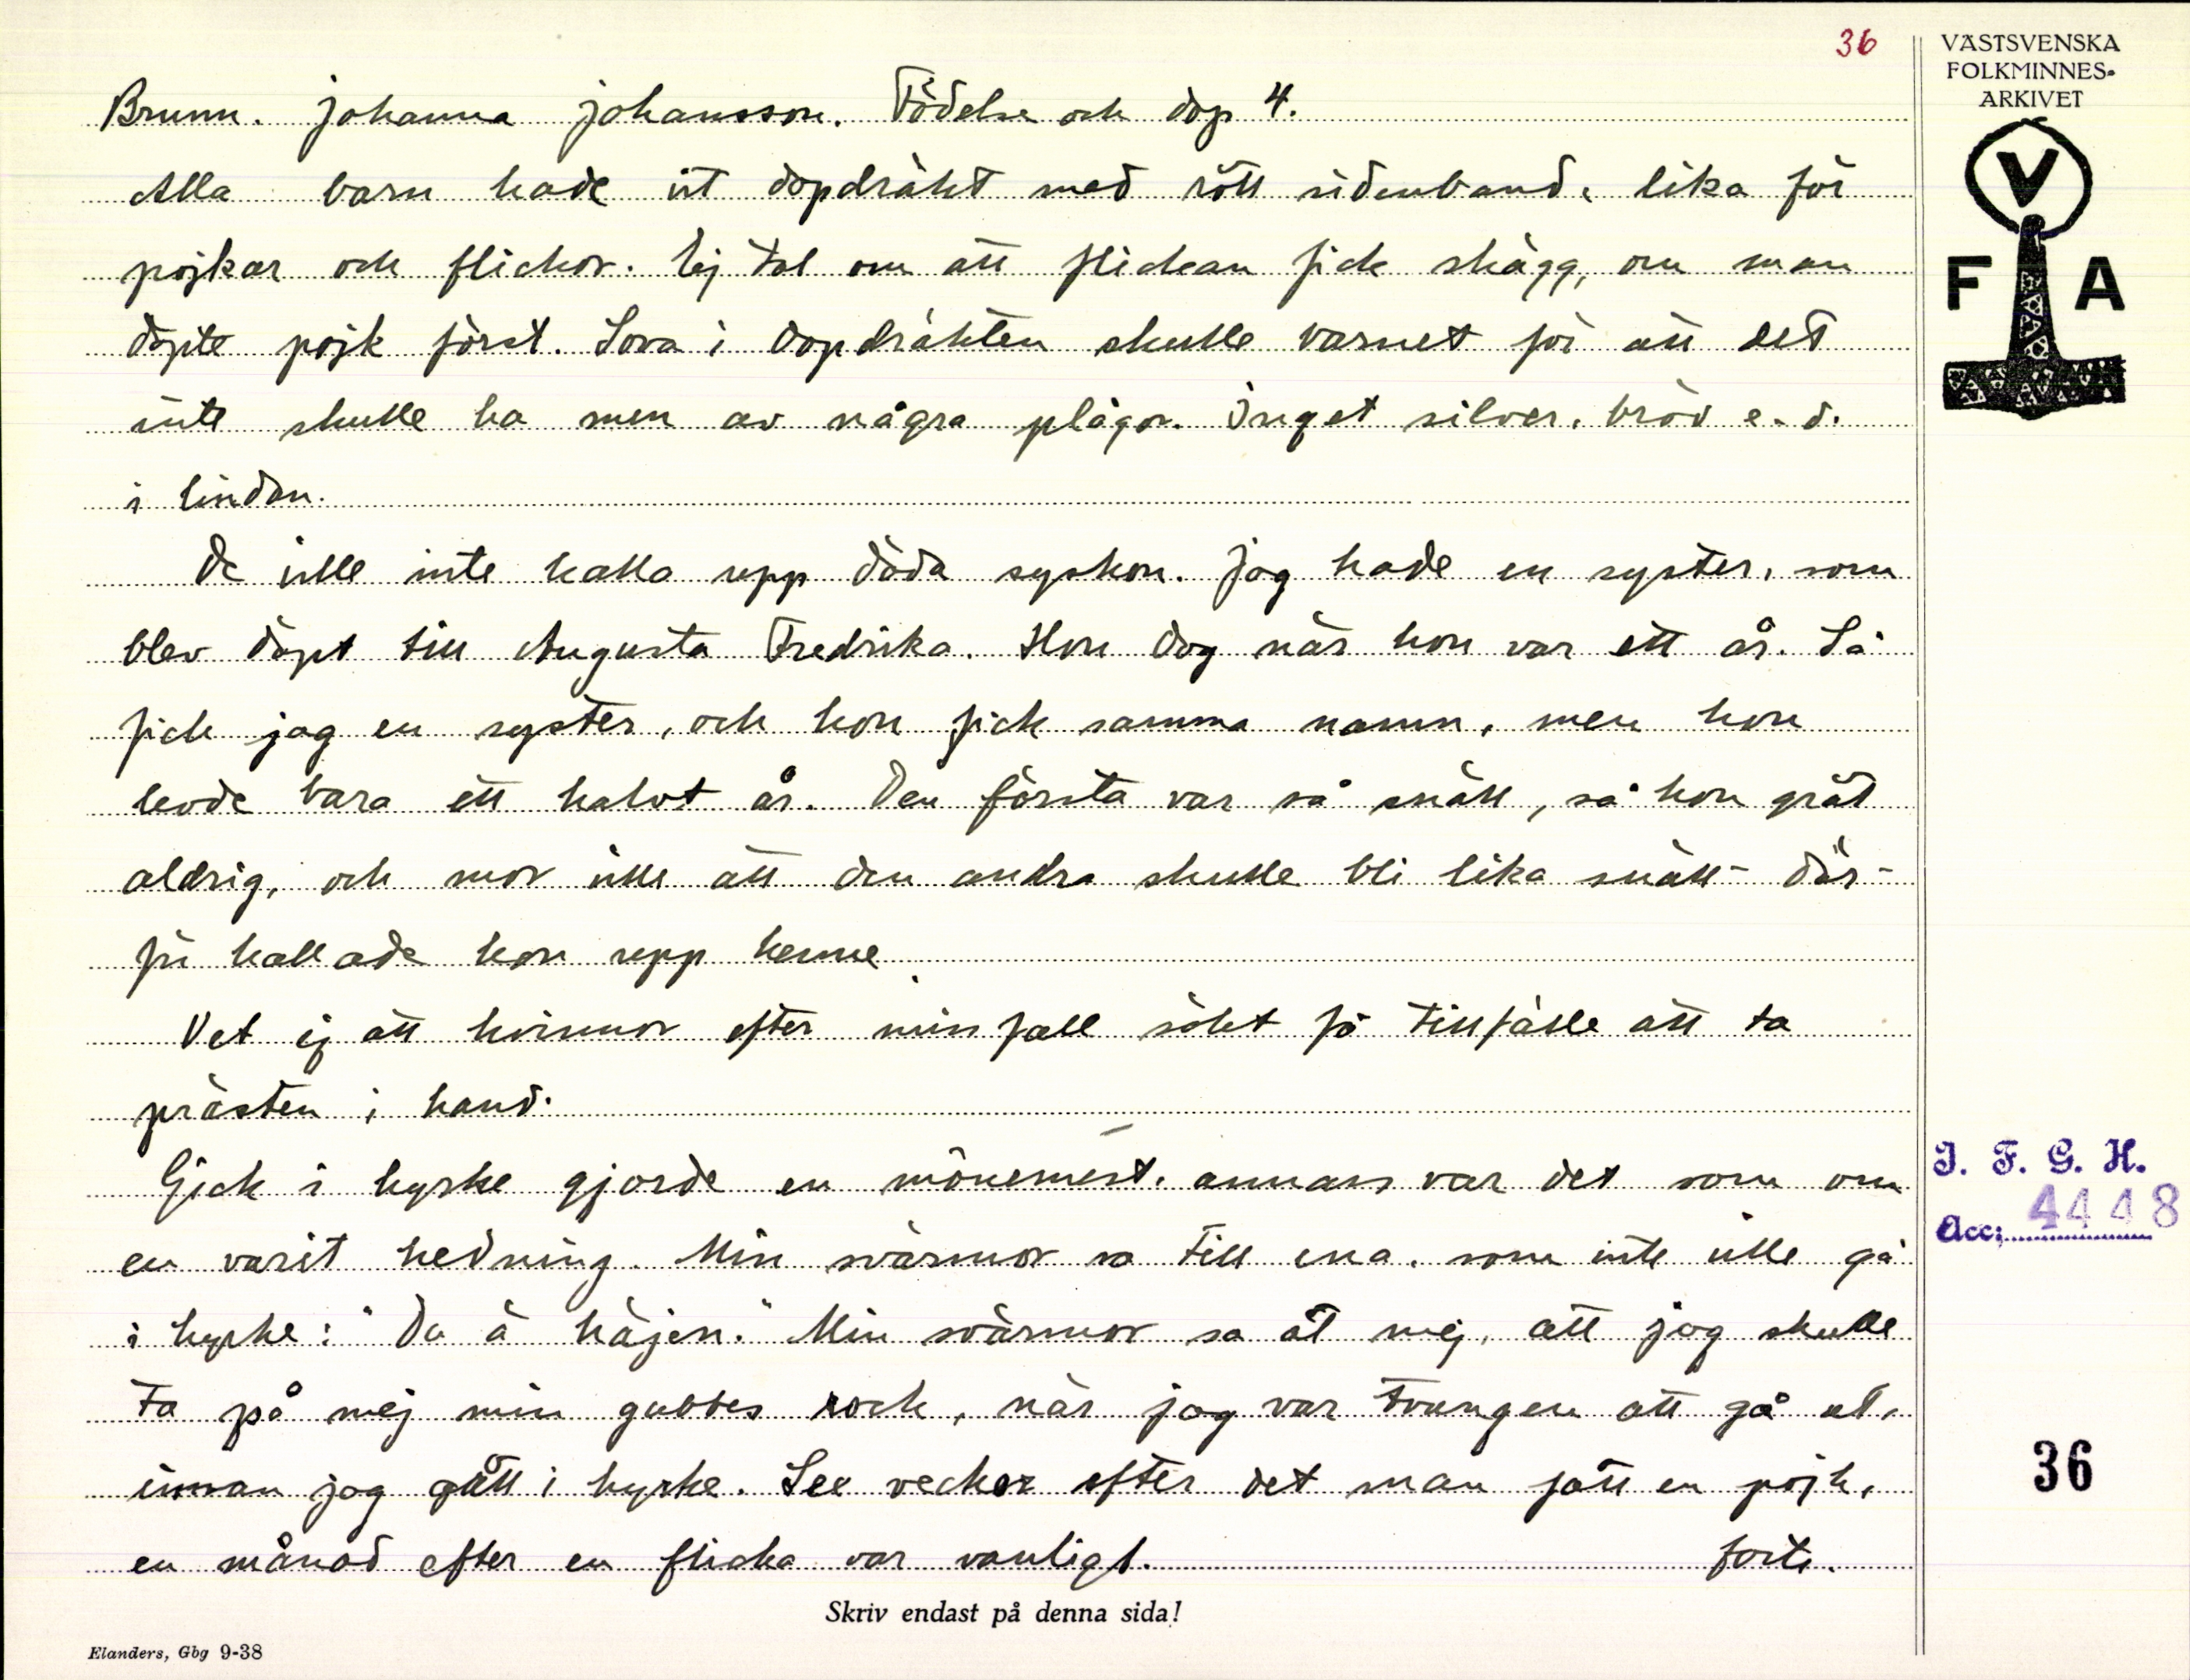 36
VÄSTSVENSKA
FOLKMINNES-
ARKIVET
V
F A
Brunn. Johanna Johansson. Födelse och dop 4.
Alla barn hade vit dopdräkt med rött sidenband, lika för
pojkar och flickor. Ej tal om att flickan fick skägg, om man
döpte pojk först. Sova i dopdräkten skulle barnet för att det
inte skulle ha men av några plågor. Inget silver, bröd e. d.
i lindan.
De ville inte kalla upp döda syskon. Jag hade en syster, som
blev döpt till Augusta Fredrika. Hon dog när hon var ett år. Så
fick jag en syster, och hon fick samma namn, men hon
levde bara ett halvt år. Den första var så snäll, så hon grät
aldrig, och mor ville att den andra skulle bli lika snäll- där-
för kallade hon upp henne
Vet ej att kvinnor efter missfall sökt få tillfälle att ta
prästen i hand.
Gick i kyrke gjorde en mönemest, annars var det som om
en varit hedning. Min svärmor sa till ena, som inte ville gå
i kyrke: "Du ä häjen." Min svärmor sa åt mej, att jag skulle
ta på mej min gubbes rock, när jag var tvungen att gå ut,
innan jag gått i kyrke. Sex veckor efter det man fått en pojk,
en månad efter en flicka var vanligt. forts.
I. F. G. H.
Acc: 4448
36
Skriv endast på denna sida!
Elanders, Gbg 9-38